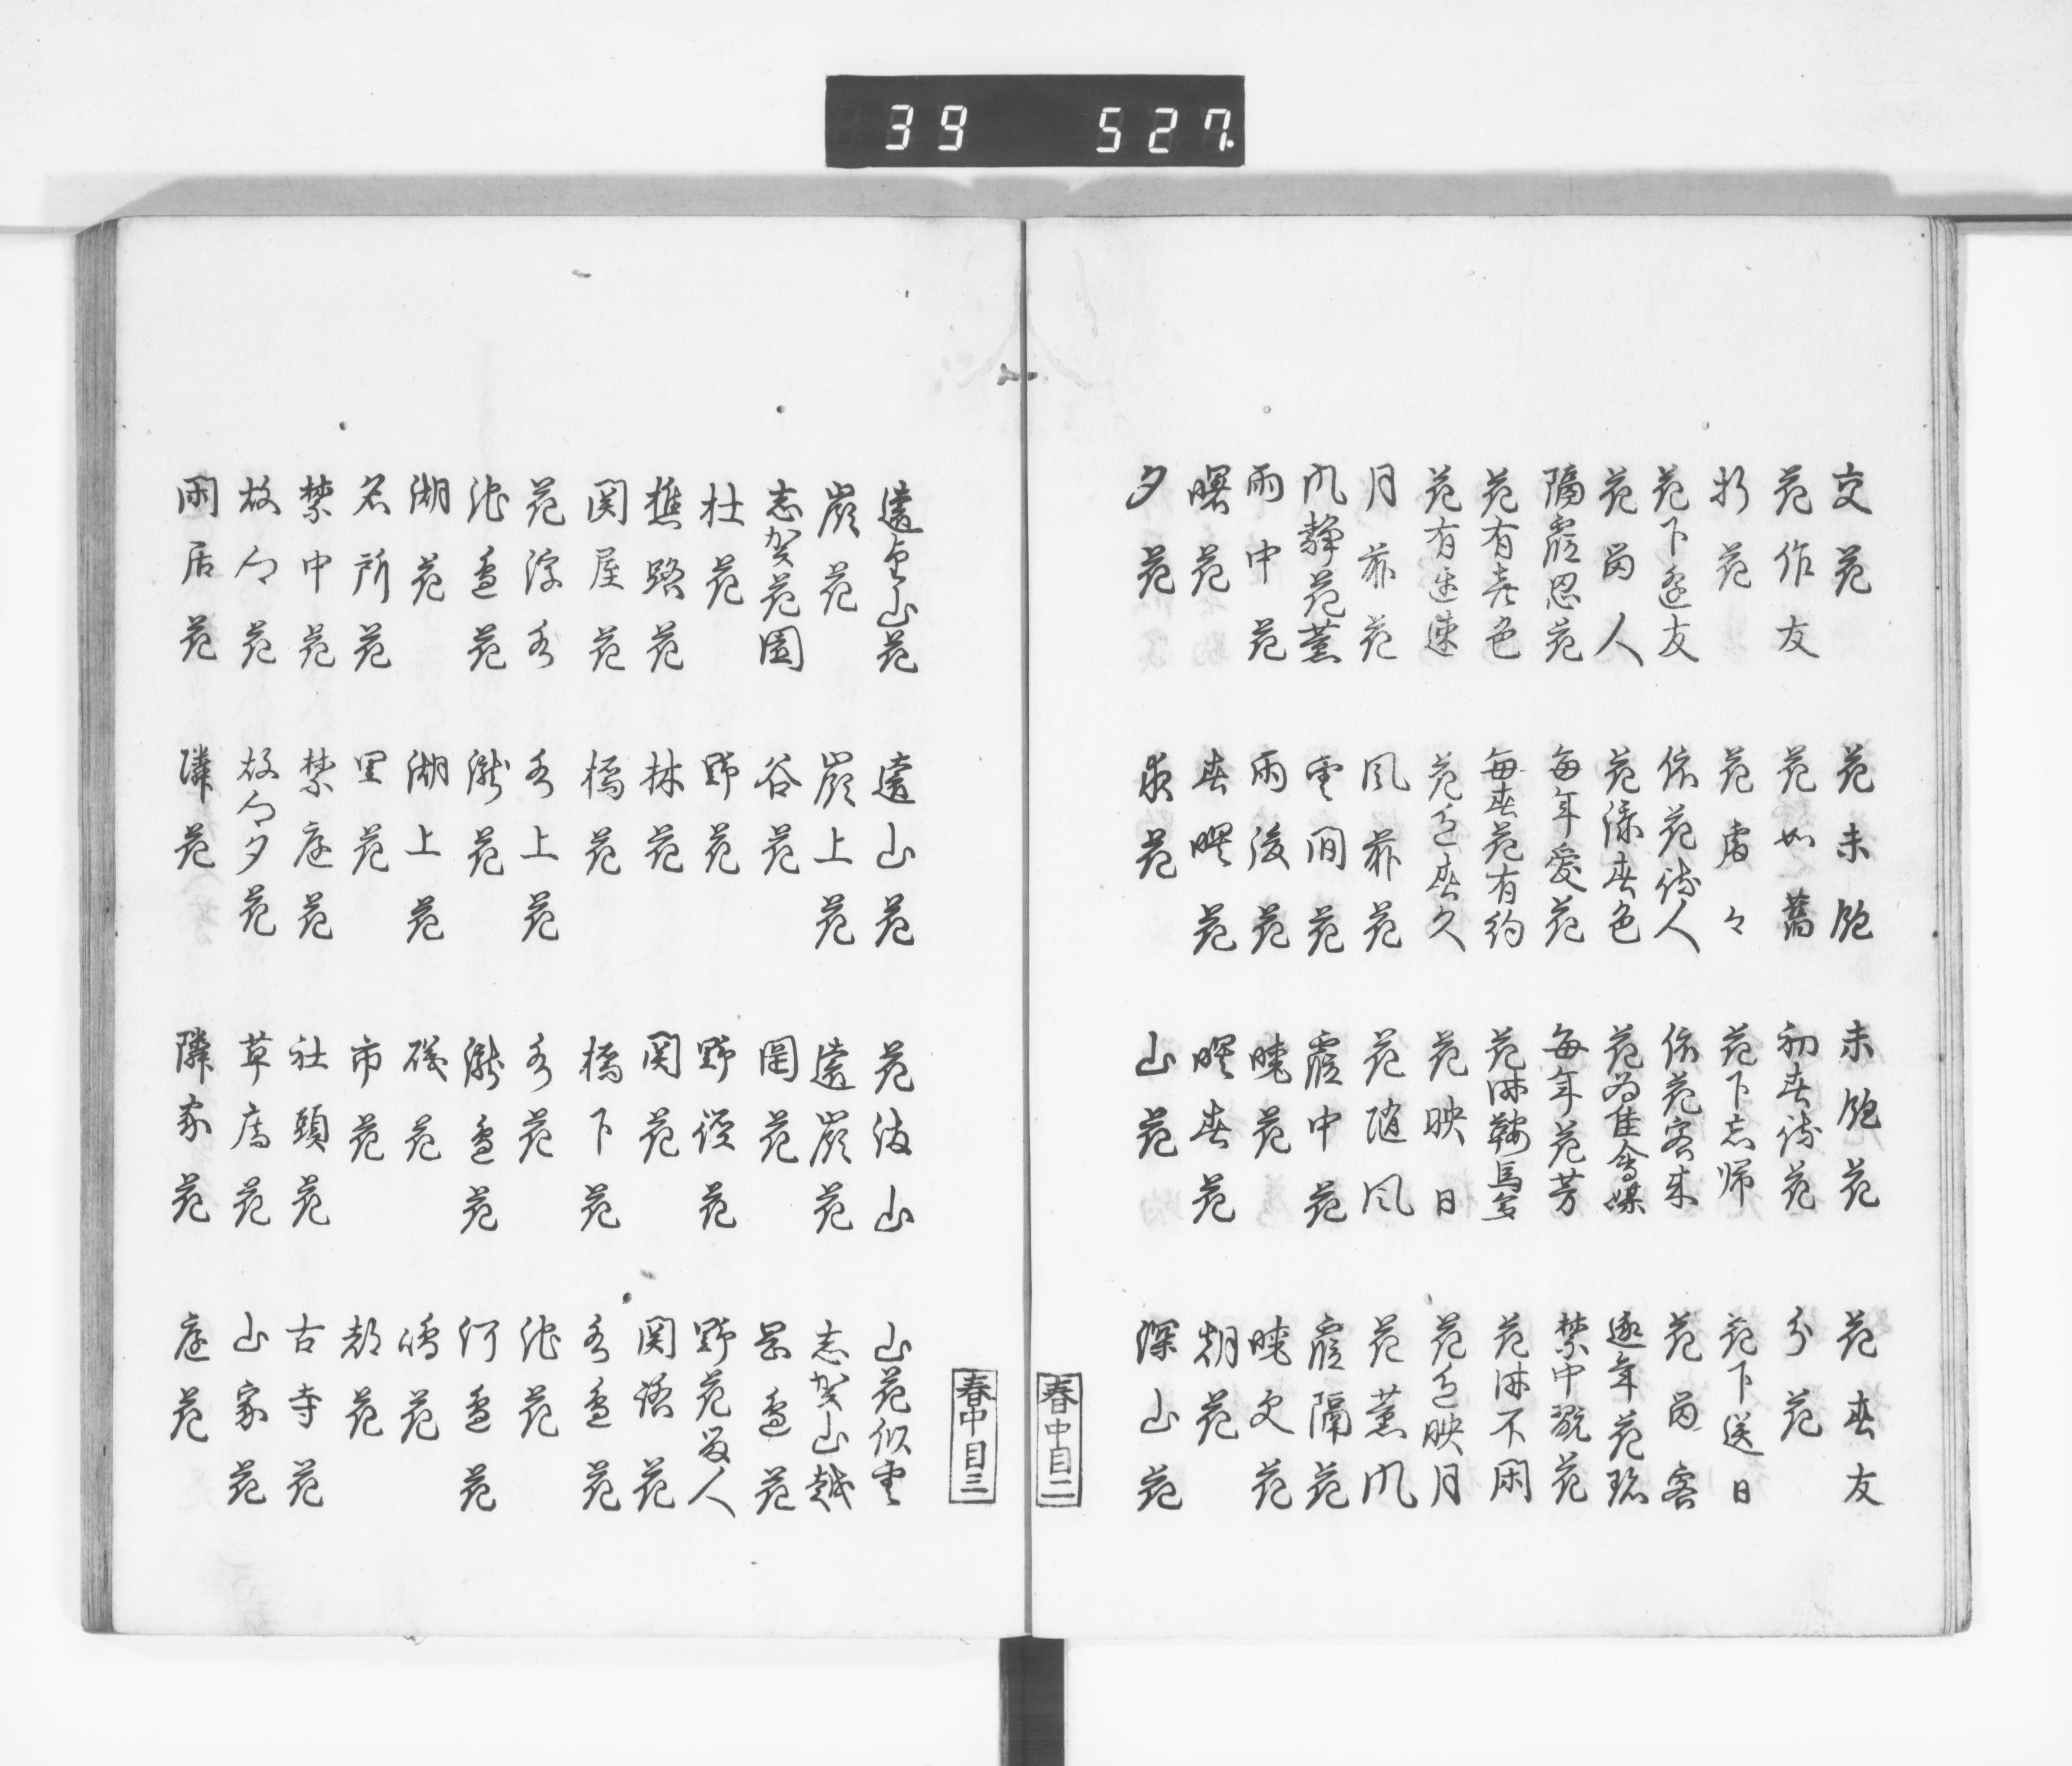 39 527
交花 花未飽 未飽花 花春友
花作友 花如舊 初春待花 分花
折花 花處々 花下忘帰 花下送日
花下逢友 依花待人 依花客来 花留客
花留人 花添春色 花為佳會媒 逐年花珍
隔霞思花 毎年愛花 毎年花芳 禁中翫花
花有喜色 毎春花有約 花時鞍馬多 花時不閑
花有遅速 花色春久 花映日 花色映月
月前花 風前花 花随風 花薫風
風静花薫 雲間花 霞中花 霞隔花
雨中花 雨後花 暁花 暁更花
曙花 春曙花 曙春花 朝花
夕花 夜花 山花 深山花
春中目二
春中目三
遠望山花 遠山花 花満山 山花似雲
嶺花 嶺上花 遠嶺花 志賀山越
志賀花園 谷花 岡花 岡邊花
杜花 野花 野径花 野花留人
樵路花 林花 関花 関路花
関屋花 橋花 橋下花 水邊花
花浮水 水上花 水花 池花
池邊花 瀧花 瀧邊花 河邊花
湖花 湖上花 磯花 嶋花
名所花 里花 市花 都花
禁中花 禁庭花 社頭花 古寺花
故郷花 故郷夕花 草庵花 山家花
閑居花 隣花 隣家花 庭花